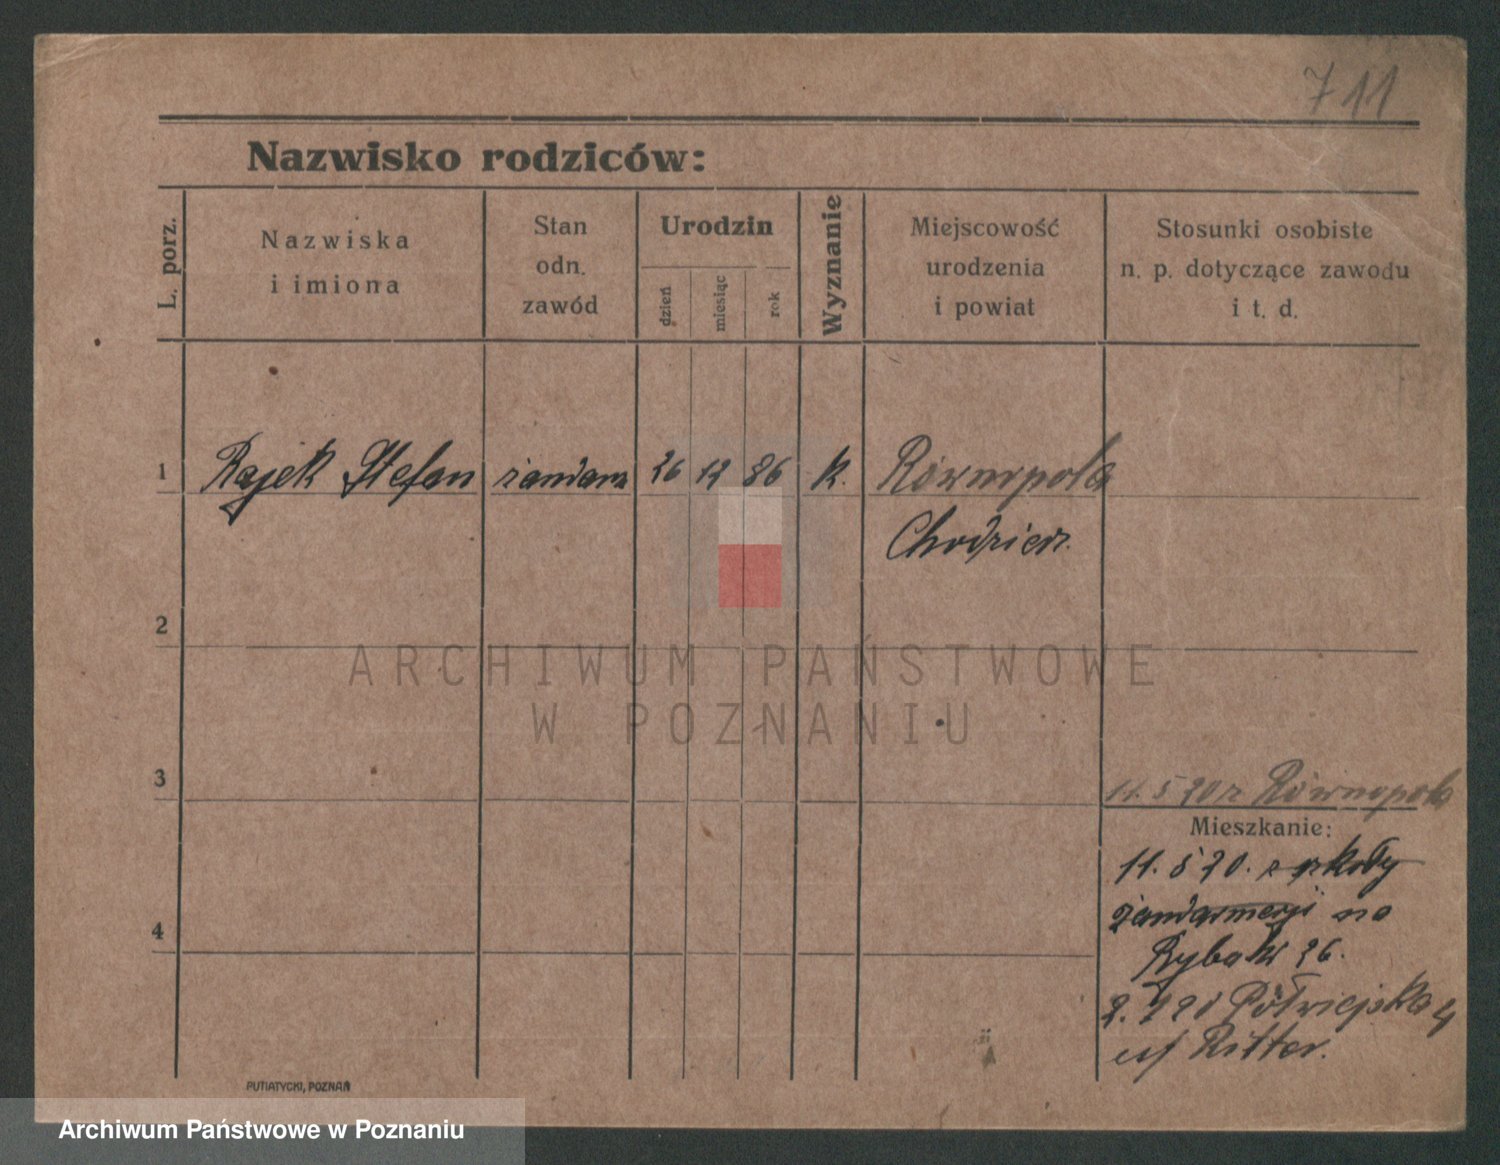 711
Nazwisko rodziców:
L. porz.
Nazwiska
i imiona
Stan
odn.
zawód
Urodzin
dzień
miesiąc
rok
Wyznanie
Miejscowość
urodzenia
i powiat
Stosunki osobiste
n. p. dotyczące zawodu
i t. d.
1 Rajek Stefan żandarm 26 12 86 k. Równopole
Chodzież.
2
ARCHIWUM PAŃSTWOWE
W POZNANIU
3
11.5 20 z Równopola
Mieszkanie:
11. 5 20. szkoły
żandarmerji na
4
Rybaki 26.
2. 7 20 Półwiejska 4
Ritter.
PUTIATYCKI, POZNAŃ
Archiwum Państwowe w Poznaniu